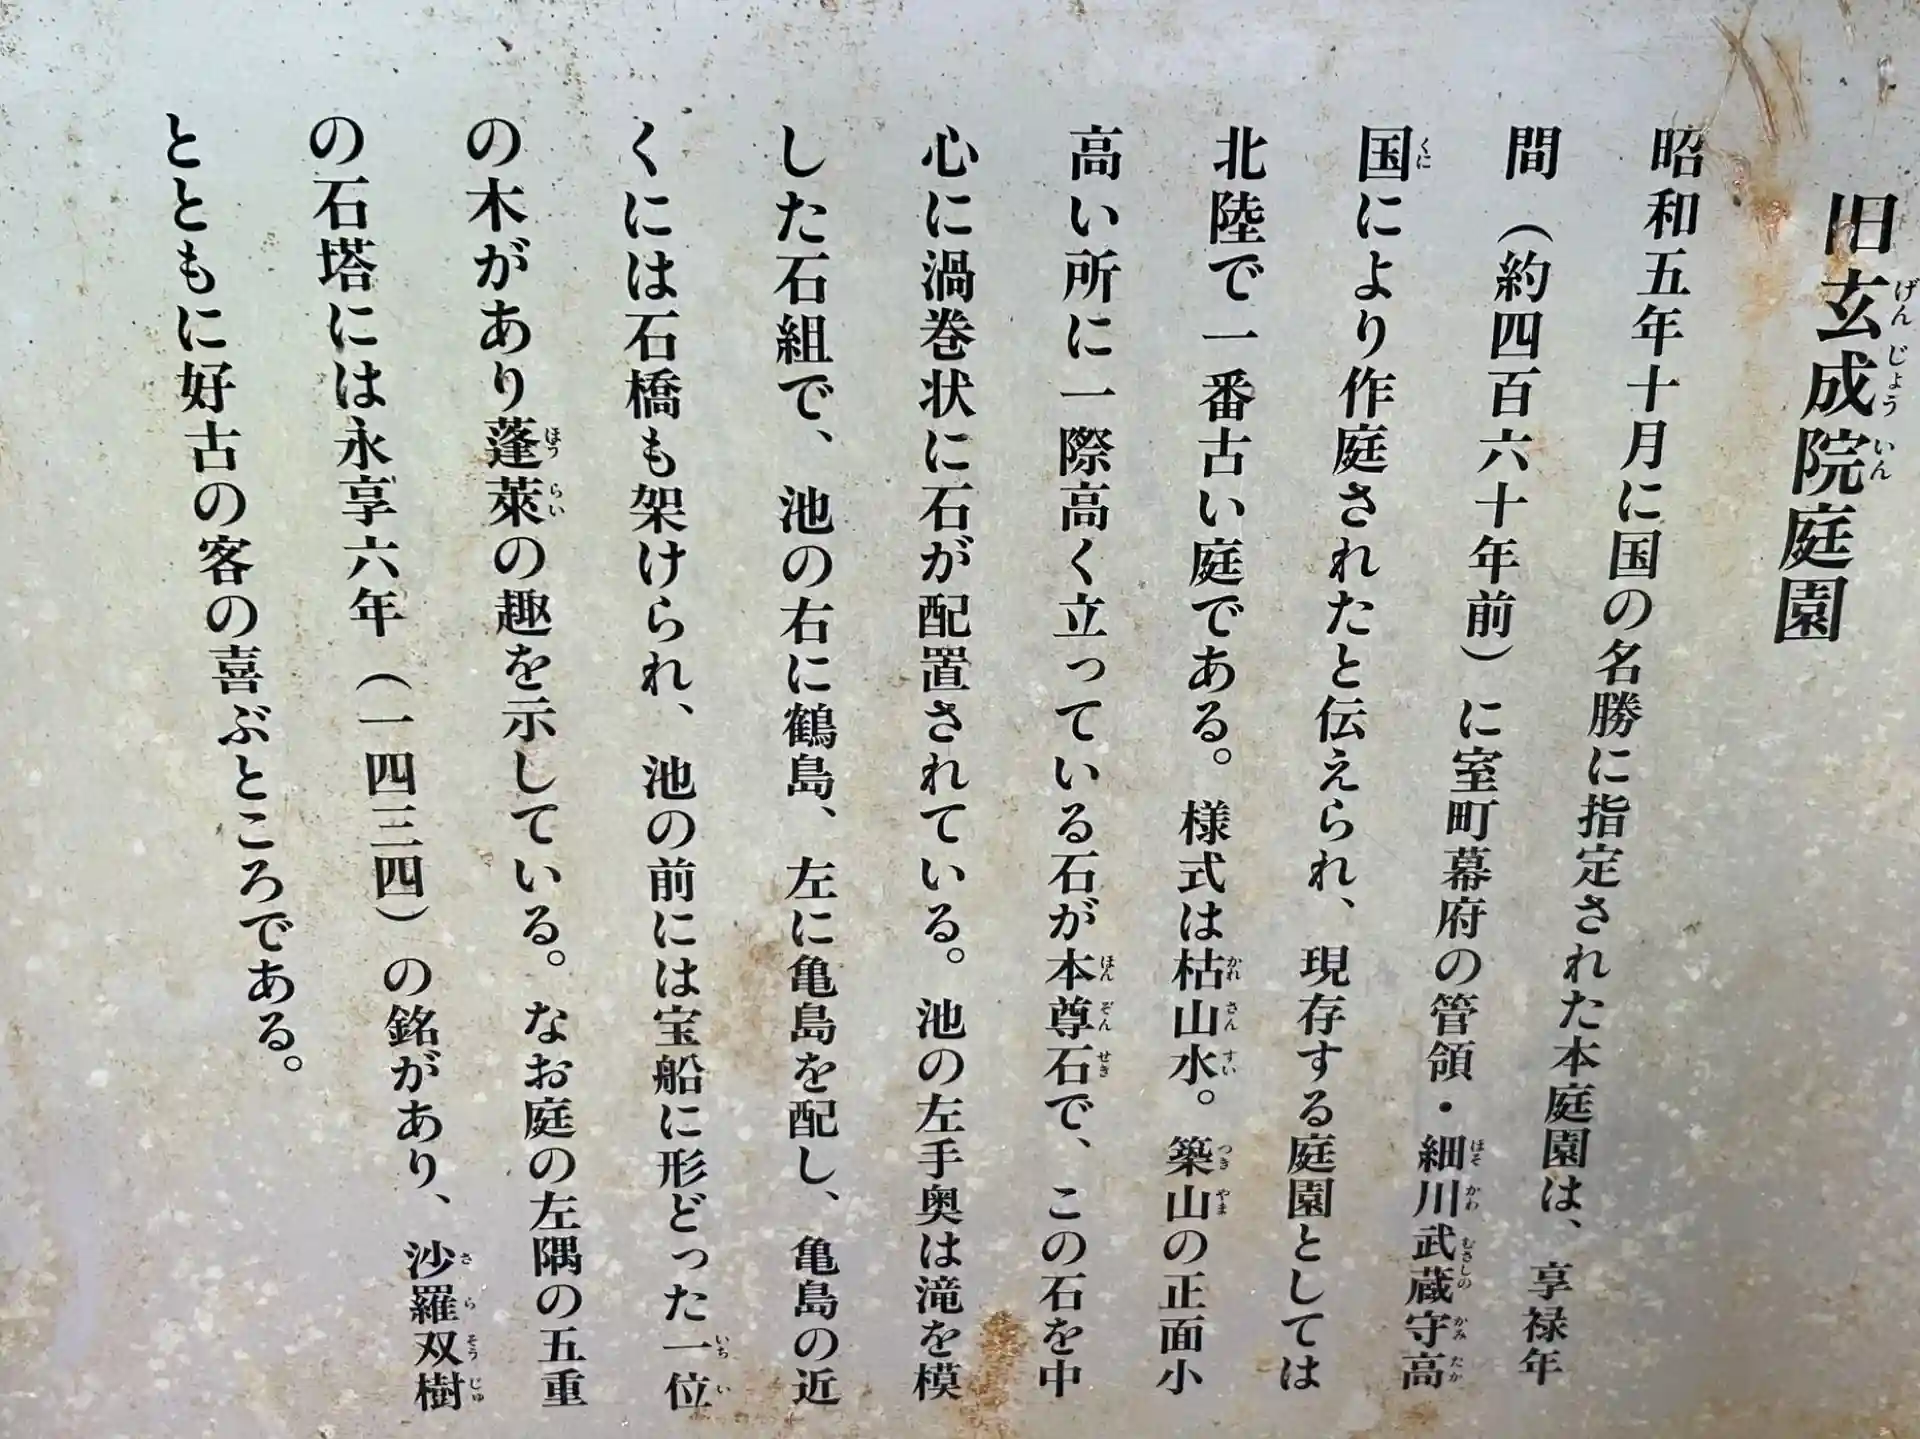 旧玄成院庭園
昭和五年十月に国の名勝に指定された本庭園は、享禄年
間（約四百六十年前）に室町幕府の管領・細川武蔵守高
国により作庭されたと伝えられ、現存する庭園としては
北陸で一番古い庭である。様式は枯山水。築山の正面小
高い所に一際高く立っている石が本尊石で、この石を中
心に渦巻状に石が配置されている。池の左手奥は滝を模
した石組で、池の右に鶴島、左に亀島を配し、亀島の近
くには石橋も架けられ、池の前には宝船に形どった一位
の木があり蓬萊の趣を示している。なお庭の左隅の五重
の石塔には永享六年（一四三四）の銘があり、沙羅双樹
とともに好古の客の喜ぶところである。
げんじょういん
ほそかわむさしのかみたか
くに
かれさんすい
つきやま
ほんぞんせき
いちい
ほうらい
さらそうじゅ